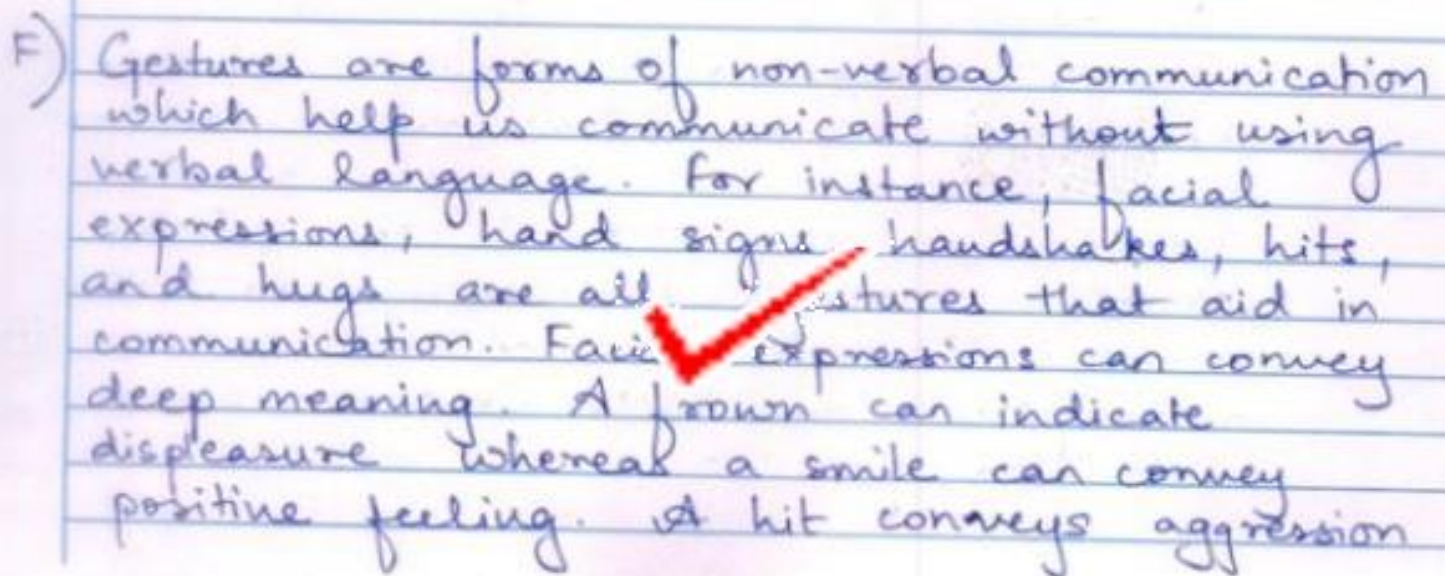 F) Gestures are forms of non-verbal communication
which help us communicate without using
verbal language. For instance, facial
expressions, hand signs handshakes, hits,
and hugs are all gestures that aid in
communication. Facial expressions can convey
deep meaning. A frown can indicate
displeasure whereas a smile can convey
positive feeling. A hit conveys aggression